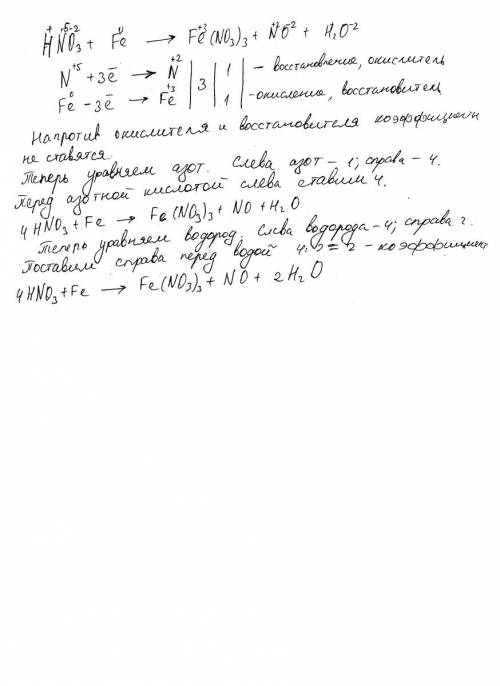 H⁺N⁺⁵O₃⁻² + Fe⁰ → Fe⁺³(NO₃)₃ + N⁺²O⁻² + H₂⁺O⁻²
N⁺⁵ + 3ē → N⁺² | 3 | 1 | – восстановление, окислитель
Fe⁰ – 3ē → Fe⁺³ | | 1 | – окисление, восстановитель
Напротив окислителя и восстановителя коэффициенты
не ставятся.
Теперь уравняем азот. Слева азот – 1; справа – 4.
Перед азотной кислотой слева ставим 4.
4HNO₃ + Fe → Fe(NO₃)₃ + NO + H₂O
Теперь уравняем водород. Слева водорода – 4; справа 2.
Поставим справа перед водой 4:2 = 2 – коэффициент
4HNO₃ + Fe → Fe(NO₃)₃ + NO + 2H₂O